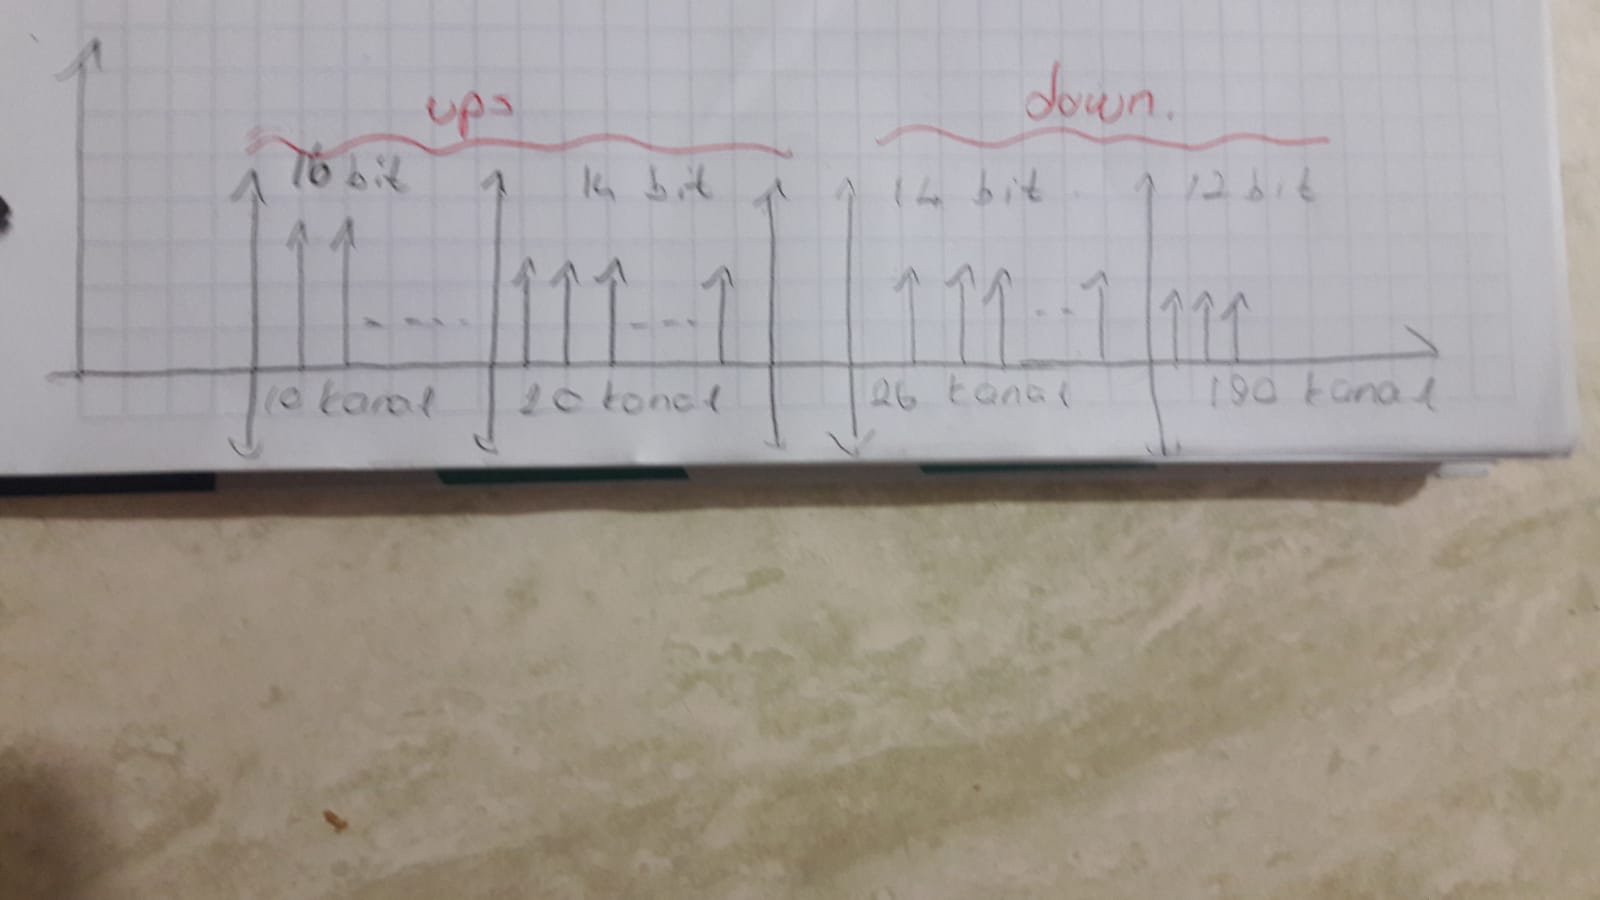 ups down.
16 bit 14 bit 14 bit. 12 bit
10 kanal 20 kanal 26 kanal 190 kanal